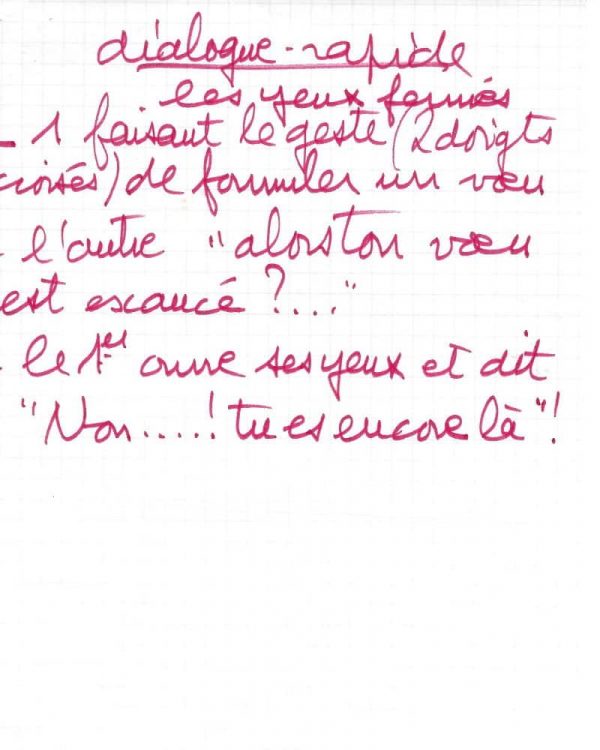 dialogue-rapide
les yeux fermés
- 1 faisant le geste (2 doigts
croisés) de formuler un vœu
- l'autre "alors ton vœu
est exaucé ?..."
- le 1er ouvre ses yeux et dit
"Non.....! tu es encore là"!